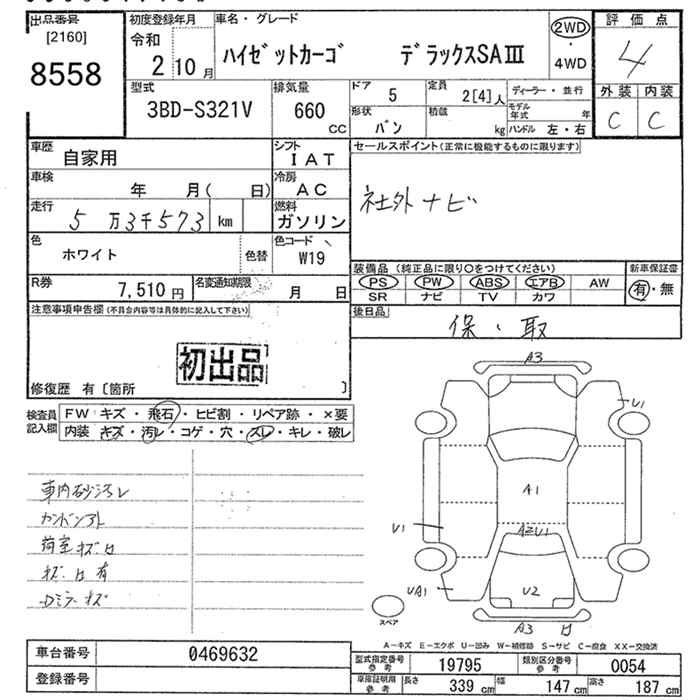 出品番号
[2160]
8558
初度登録年月
令和
2 10月
車名・グレード
ハイゼットカーゴ デラックスSAⅢ
2WD
・
4WD
評価点
4
外装 内装
C C
型式
3BD-S321V
排気量
660
CC
ドア
5
定員
2[4]人
ディーラー・並行
形状
バン
積載
kg
モデル年式 年
ハンドル 左・右
車歴
自家用
シフト
IAT
車検
年 月( 日)
冷房
AC
走行
5万3千573 km
燃料
ガソリン
色
ホワイト
色替
色コード
W19
R券
7,510円
名変通知期限
月 日
セールスポイント(正常に機能するものに限ります)
社外ナビ
装備品 (純正品に限り○をつけてください)
PS PW ABS エアB AW
SR ナビ TV カワ
新車保証書
有・無
後日品
保・取
注意事項申告欄(不具合内容等は具体的に記入して下さい)
初出品
修復歴 有〔箇所 〕
検査員
記入欄
FW キズ・飛石・ヒビ割・リペア跡・×要
内装 キズ・汚レ・コゲ・穴・スレ・キレ・破レ
車内砂汚レ
荷室キズ
有
Dミラーキズ
A3
U1
A1
U1
A2U1
UA1
U2
A3
スペア
A-キズ E-エクボ U-凹み W-補修跡 S-サビ C-腐食 XX-交換済
車台番号
0469632
登録番号
型式指定番号
参考
19795
類別区分番号
参考
0054
車庫証明用
参考
長さ 339cm
幅 147cm
高さ 187cm